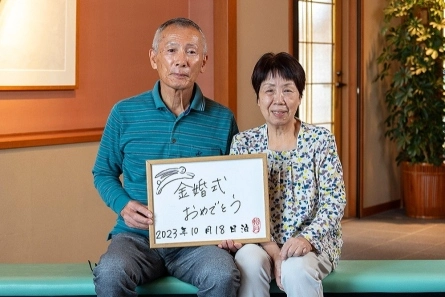 金婚式
おめでとう
2023年10月18日